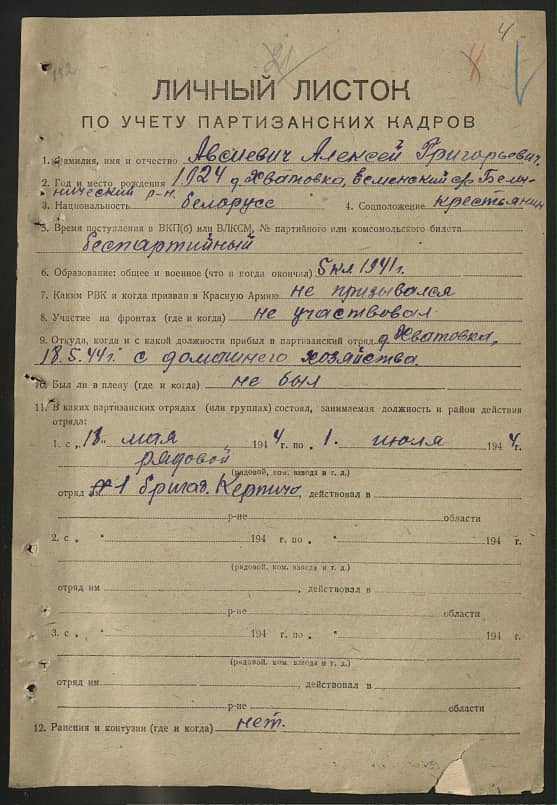 4
192
21
4
ЛИЧНЫЙ ЛИСТОК
ПО УЧЕТУ ПАРТИЗАНСКИХ КАДРОВ
1. Фамилия, имя и отчество Авсиевич Алексей Григорьевич
2. Год и место рождения 1924 д. Хватовка, Есменский с/с Белы-
ничский р-н.
3. Национальность белорусс 4. Соцположение крестьянин
5. Время поступления в ВКП(б) или ВЛКСМ, № партийного или комсомольского билета
беспартийный
6. Образование: общее и военное (что и когда окончил) 5 кл 1941 г.
7. Каким РВК и когда призван в Красную Армию не призывался
8. Участие на фронтах (где и когда) не участвовал
9. Откуда, когда и с какой должности прибыл в партизанский отряд д. Хватовка,
18.5.44 г. с домашнего хозяйства.
10. Был ли в плену (где и когда) не был
11. В каких партизанских отрядах (или группах) состоял, занимаемая должность и район действия
отряда:
1. с „18" мая 1944 г. по „1. июля 1944 г.
рядовой
(рядовой, ком. взвода и т. д.)
отряд им №1 бригад. Кирпича, действовал в
р-не области
2. с „ " 194 г. по „ " 194 г.
(рядовой, ком. взвода и т. д.)
отряд им , действовал в
р-не области
3. с „ " 194 г. по „ " 194 г.
(рядовой, ком. взвода и т. д.)
отряд им , действовал в
р-не области
12. Ранения и контузии (где и когда) нет.